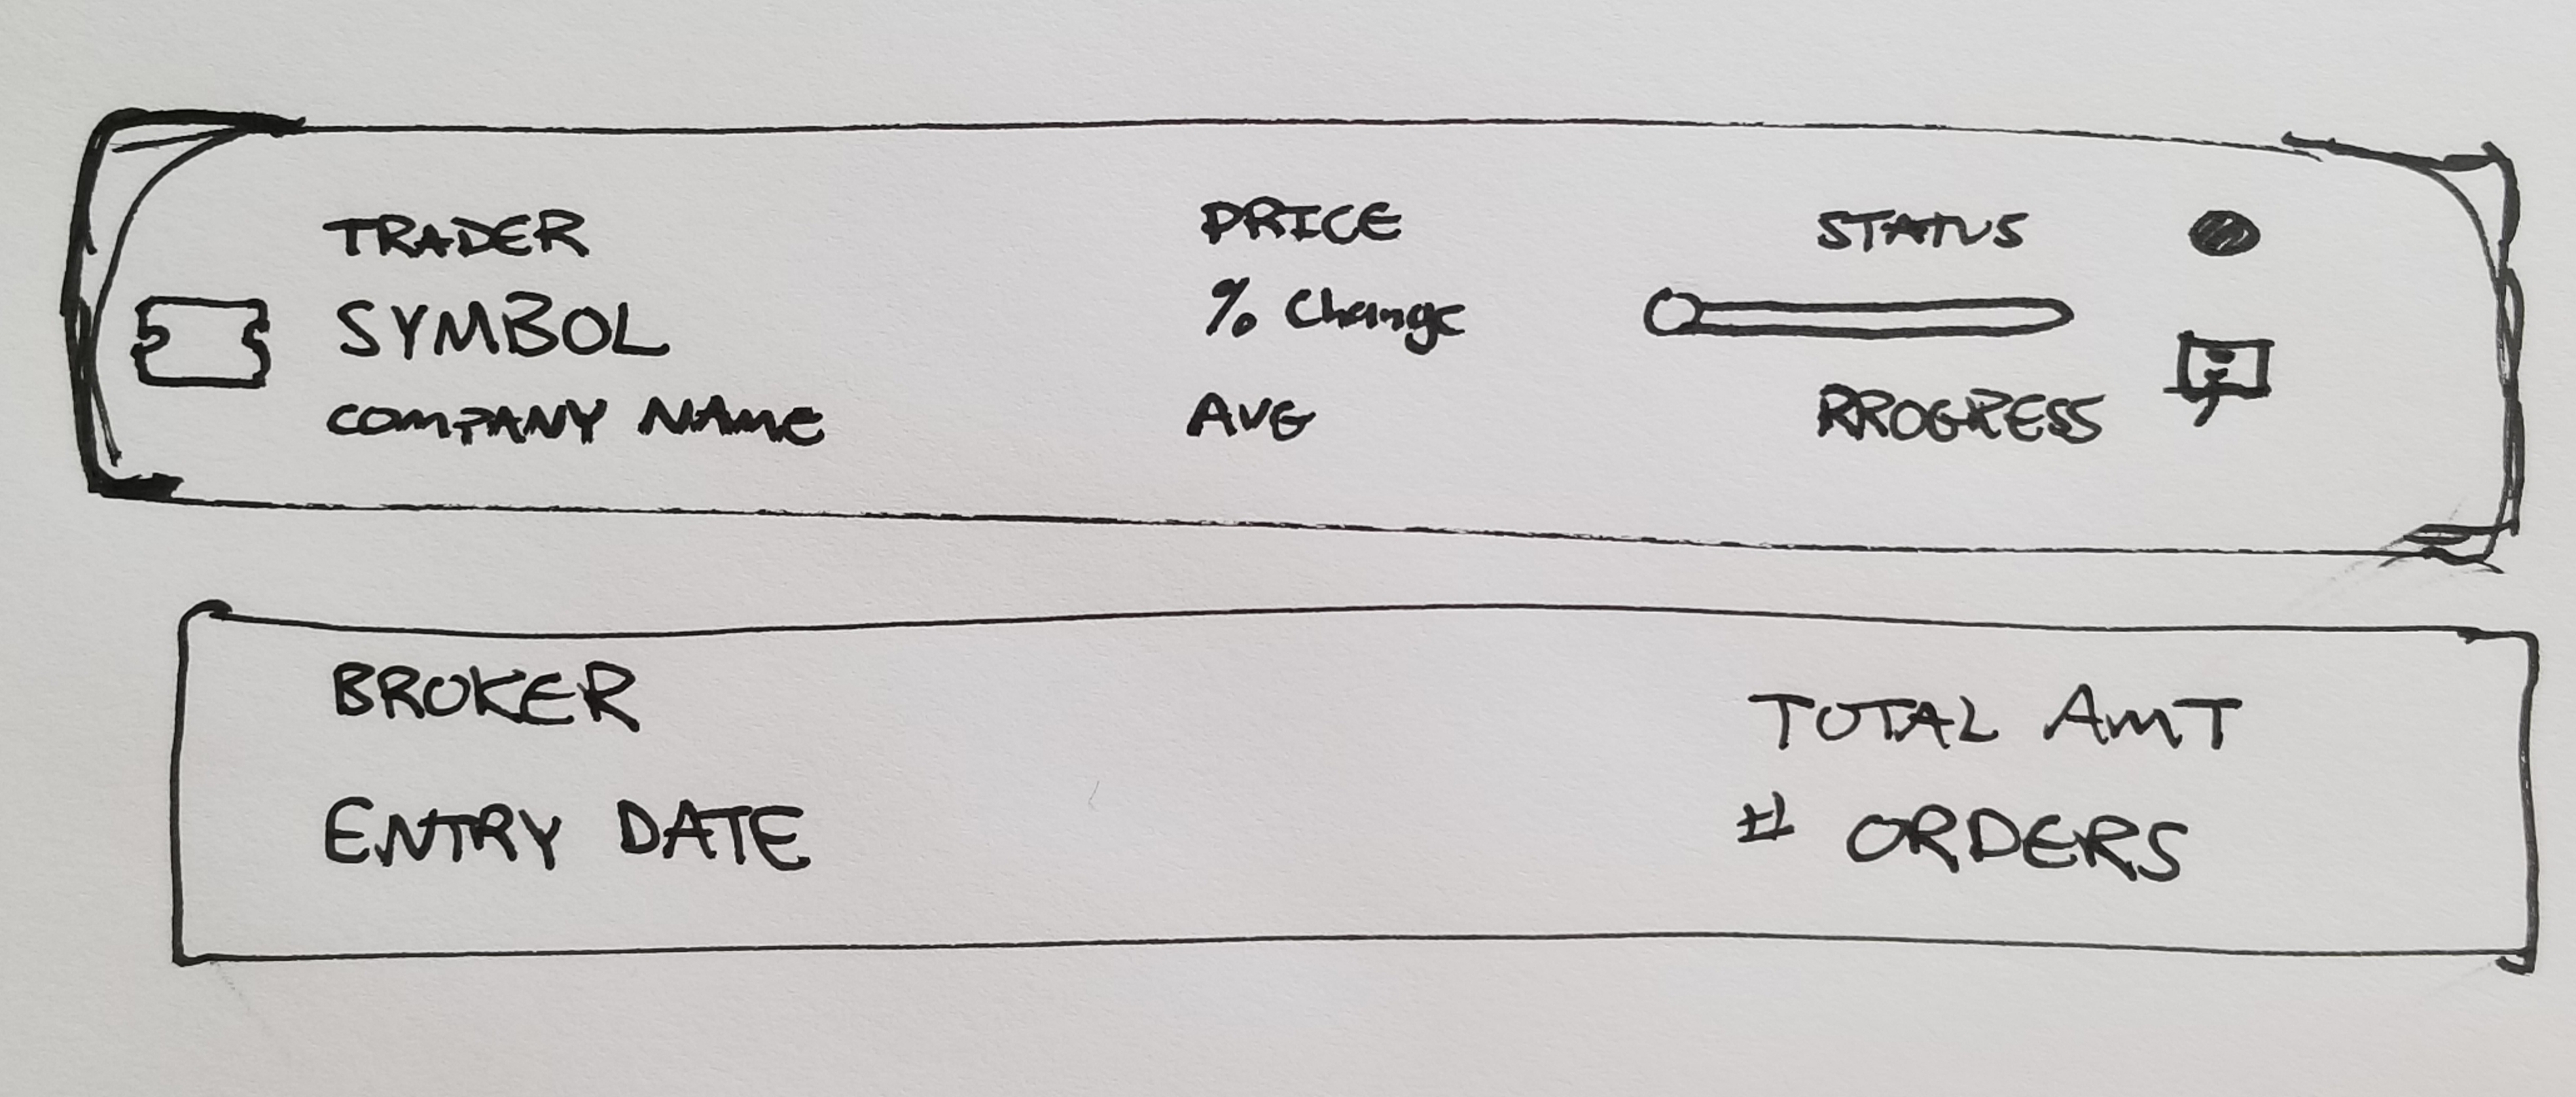 TRADER
SYMBOL
COMPANY NAME
PRICE
% Change
AVG
STATUS
RROGRESS
BROKER
ENTRY DATE
TOTAL AMT
# ORDERS